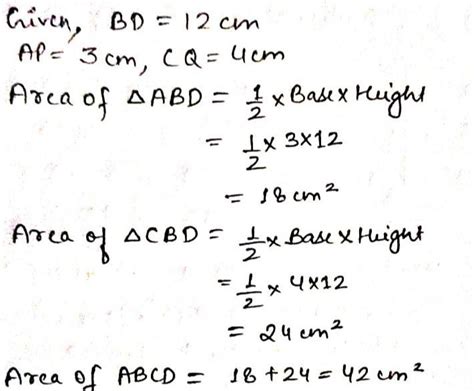 Given, BD = 12 cm
AP = 3 cm, CQ = 4 cm
Area of △ABD = 1/2 × Base × Height
= 1/2 × 3×12
= 18 cm²
Area of △CBD = 1/2 × Base × Height
= 1/2 × 4×12
= 24 cm²
Area of ABCD = 18 + 24 = 42 cm²